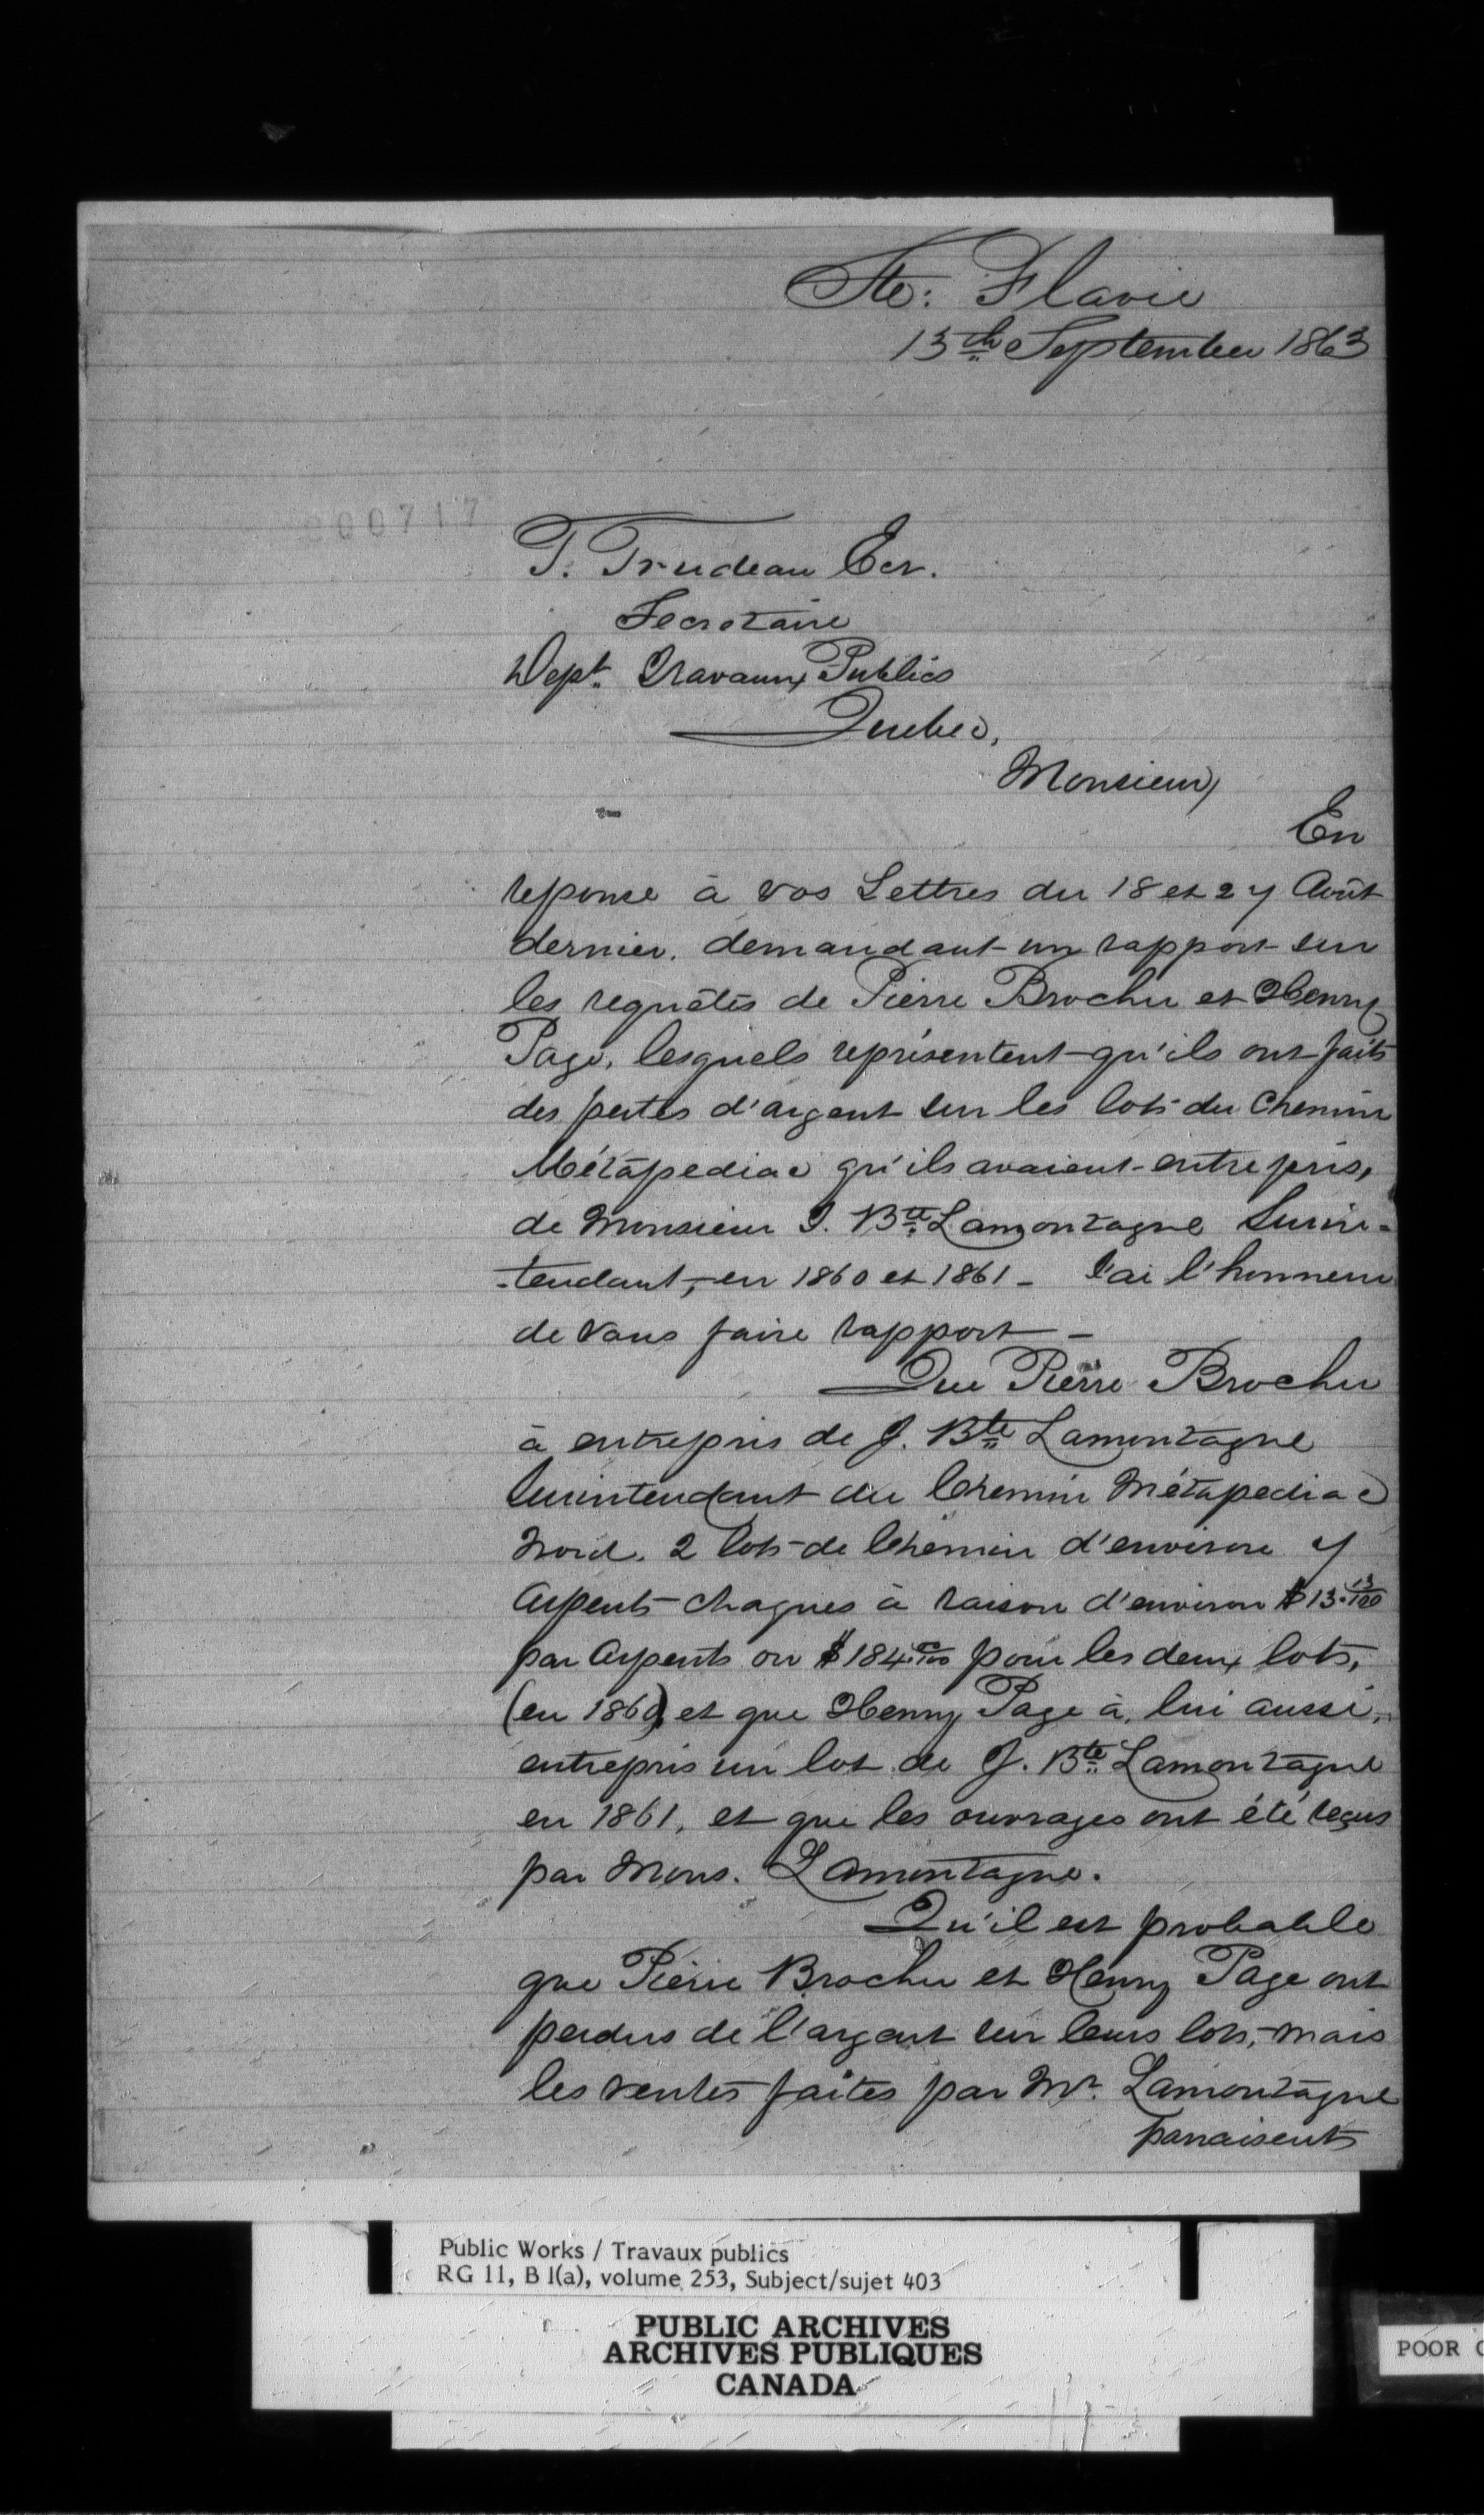 Ste: Flavie
13th September 1863
000717
T. Trudeau Ecr.
Secretaire
Dept. Travaux Publics
Quebec,
Monsieur,
En
reponse à vos Lettres du 18 et 27 Août
dernier. demandant un rapport sur
les requêtes de Pierre Brochu et Henry
Page, lesquels représentent qu'ils ont faits
des pertes d'argent sur les lots du Chemin
Métapediac qu'ils avaient entrepris,
de Monsieur J. Bte Lamontagne Surin-
-tendant, en 1860 et 1861 - J'ai l'honneur
de vous faire rapport -
Que Pierre Brochu
à entrepris de J. Bte Lamontagne
Surintendant du Chemin Métapediac
Nord. 2 lots de Chemin d'environ 7
Arpents chaques à raison d'environ $13.13/100
par Arpents ou $184.00/100 pour les deux lots,
(en 1860) et que Henry Page à, lui aussi,
entrepris un lot de J. Bte Lamontagne
en 1861, et que les ouvrages ont été reçus
par Mons. Lamontagne.
Qu'il est probable
que Pierre Brochu et Henry Page ont
perdus de l'argent sur leurs lots, mais
les ventes faites par Mr. Lamontagne
parraisents
Public Works / Travaux publics
RG 11, B 1(a), volume 253, Subject/sujet 403
PUBLIC ARCHIVES
ARCHIVES PUBLIQUES
CANADA
POOR